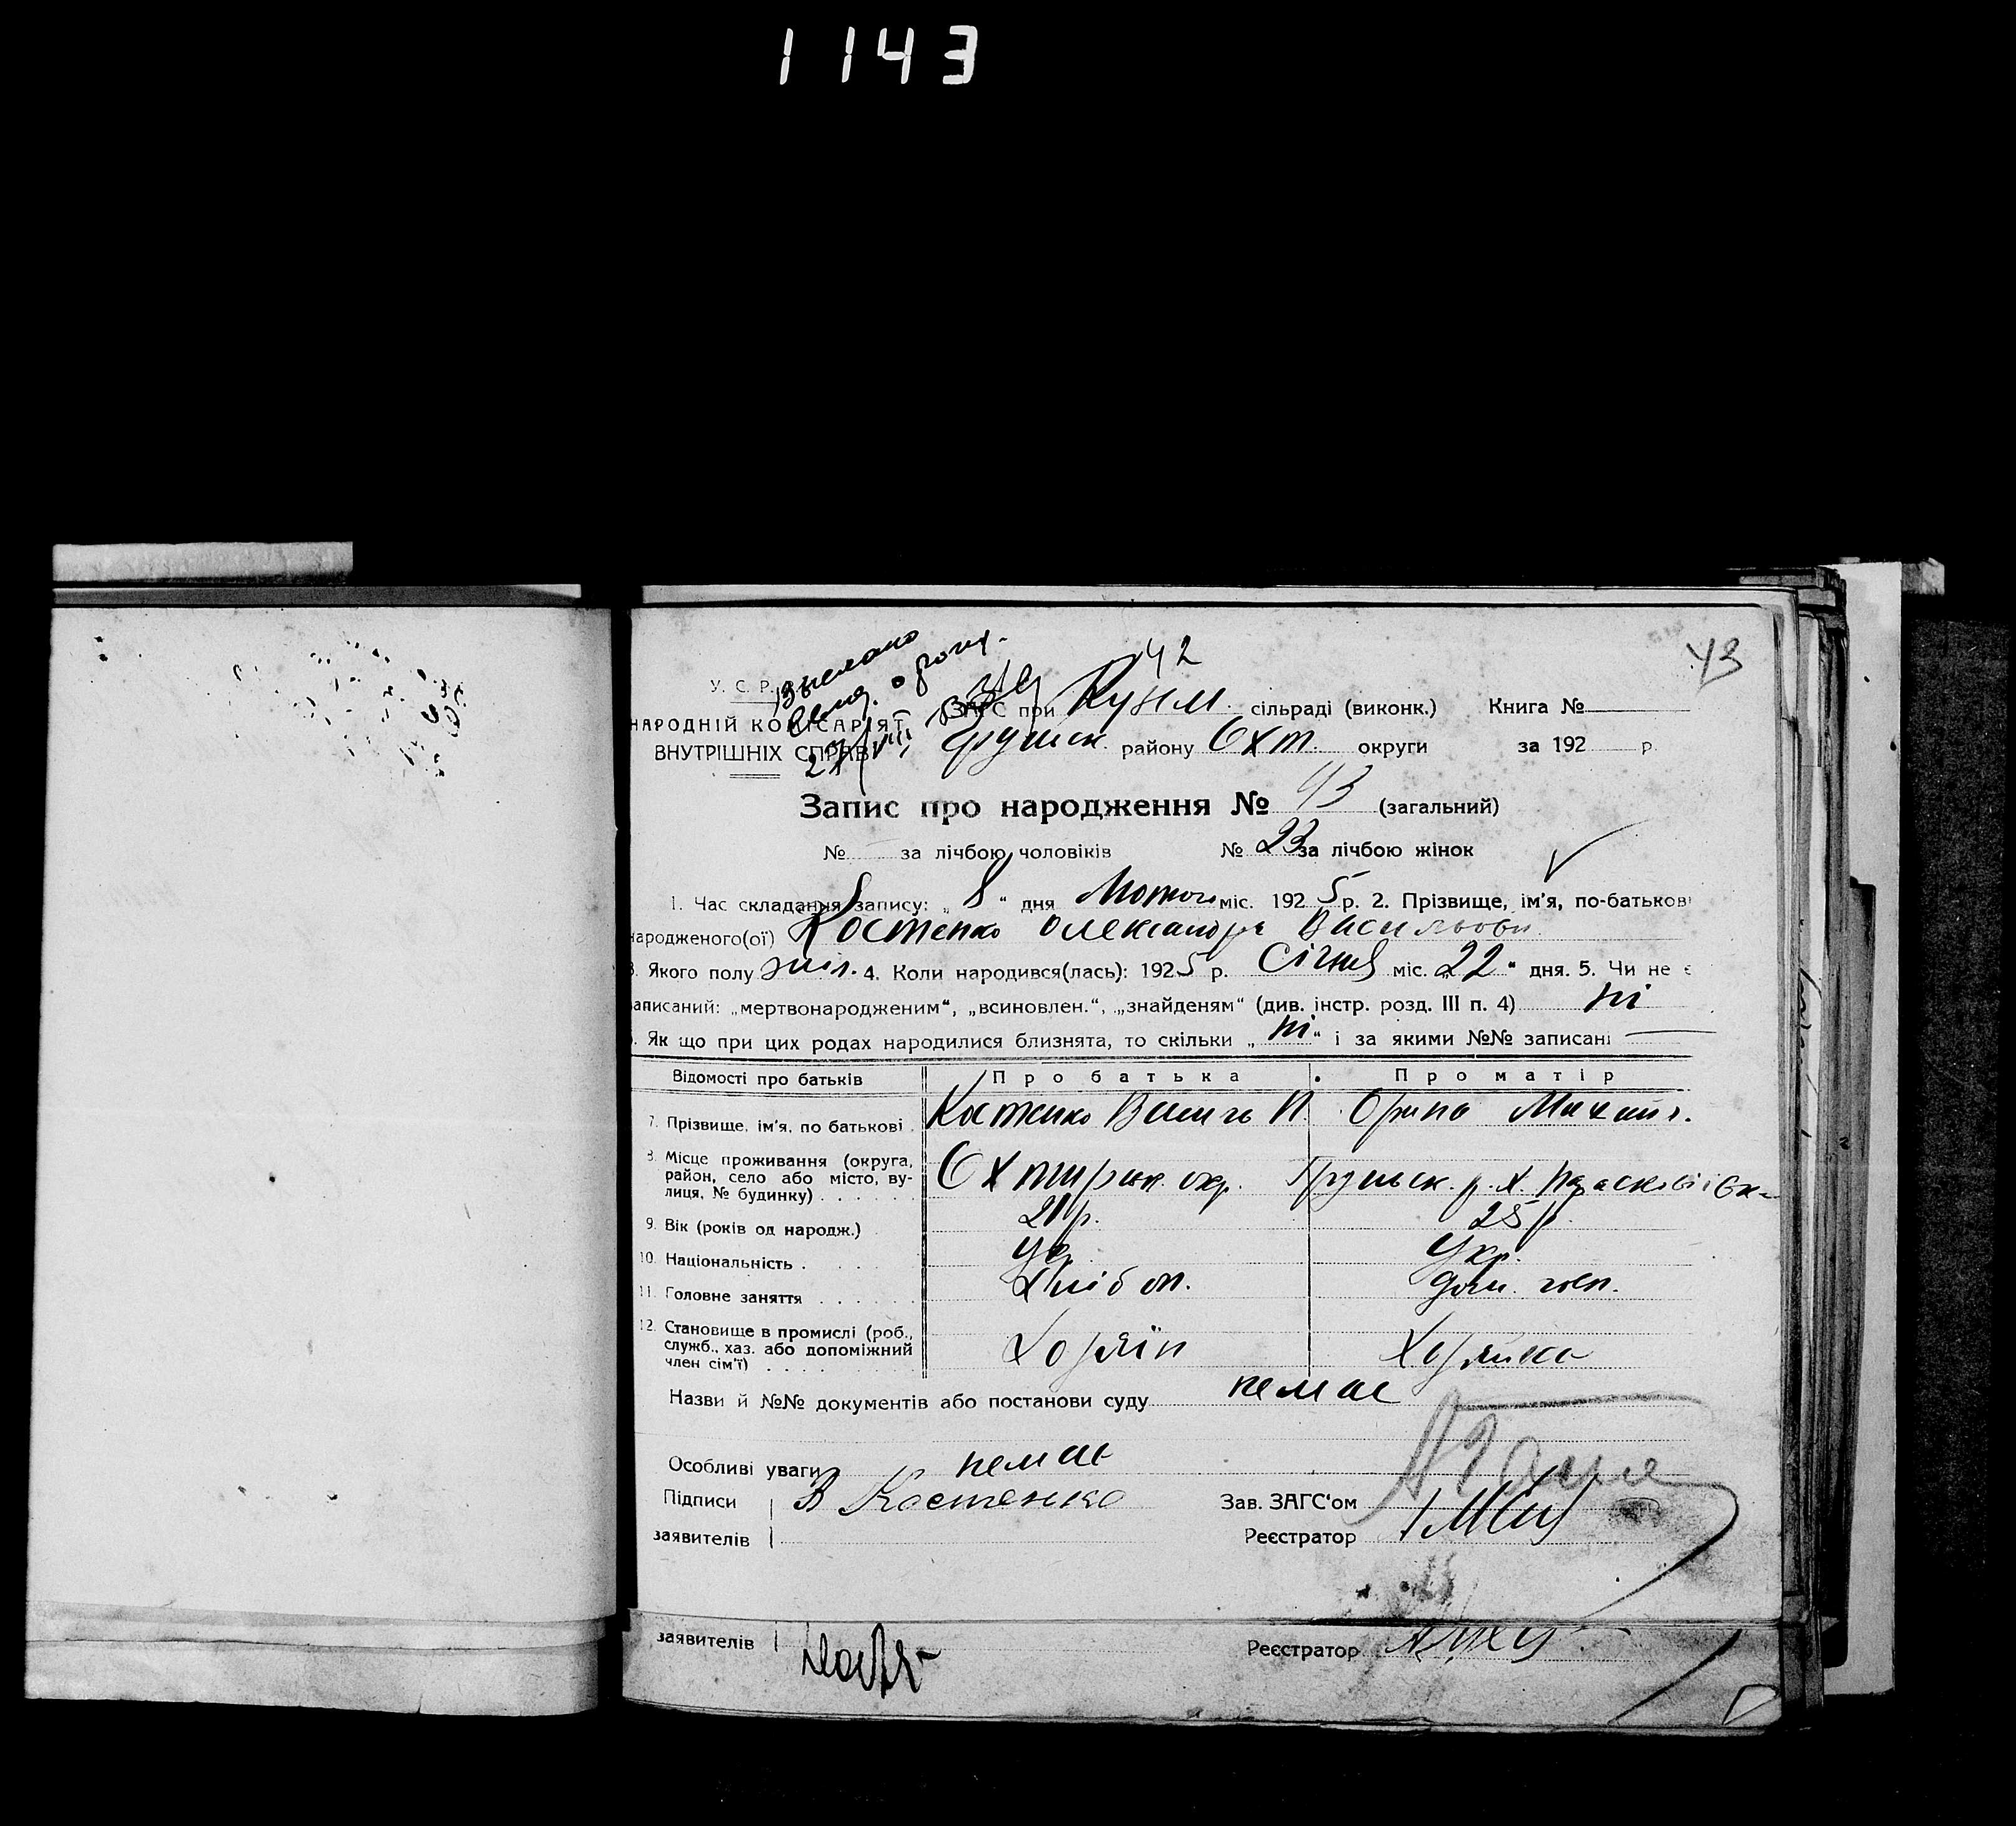 1143
42
43
У. С. Р.
Вислано
НАРОДНІЙ КОМІСАРІЯТ
ВНУТРІШНІХ СПРАВ
ЗАГС при Кузем. сільраді (виконк.) Книга №
Грунск. району Охт. округи за 192 р.
Запис про народження № 43 (загальний)
№ за лічбою чоловіків № 23 за лічбою жінок
1. Час складання запису: „8“ дня Лютого міс. 1925 р. 2. Прізвище, ім'я, по-батькові
народженого(ої) Костенко Олександра Васильовн.
3. Якого полу жін. 4. Коли народився(лась): 1925 р. Січня міс. „22“ дня. 5. Чи не є
записаний: „мертвонародженим“, „всиновлен.“, „знайденям“ (див. інстр. розд. III п. 4) ні
6. Як що при цих родах народилися близнята, то скільки „ні“ і за якими №№ записані
Відомості про батьків Про батька Про матір
7. Прізвище, ім'я, по батькові Костенко Василь П. Орина Михайл.
8. Місце проживання (округа, район, село або місто, вулиця, № будинку) Охтирськ. окр. Грунськ. р. х. Парасковіївка
9. Вік (років од народж.) 21 р. 25 р.
10. Національність Укр. Укр.
11. Головне заняття Хлібоп. дом. госп.
12. Становище в промислі (роб., служб., хаз. або допоміжний член сім'ї) Хозяїн Хозяйка
Назви й №№ документів або постанови суду немає
Особливі уваги немає
Підписи В Костенко Зав. ЗАГС'ом
заявителів Реєстратор
заявителів Реєстратор